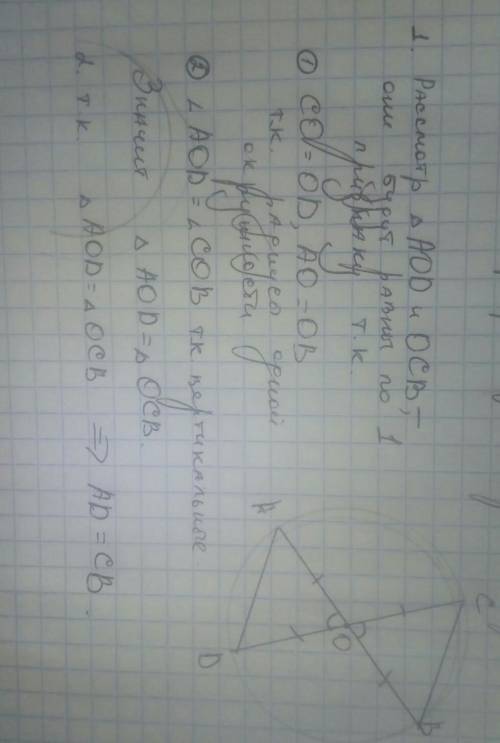 1. Рассмотр △ AOD и OCB, –
они будут равны по 1
признаку т.к.
① CO = OD, AO = OB
т.к. радиусы одной
окружности
② △ AOD = △ COB тк вертикальные
Значит △ AOD = △ OCB.
2. т.к. △ AOD = △ OCB ⇒ AD = CB.
A
C
O
D
B